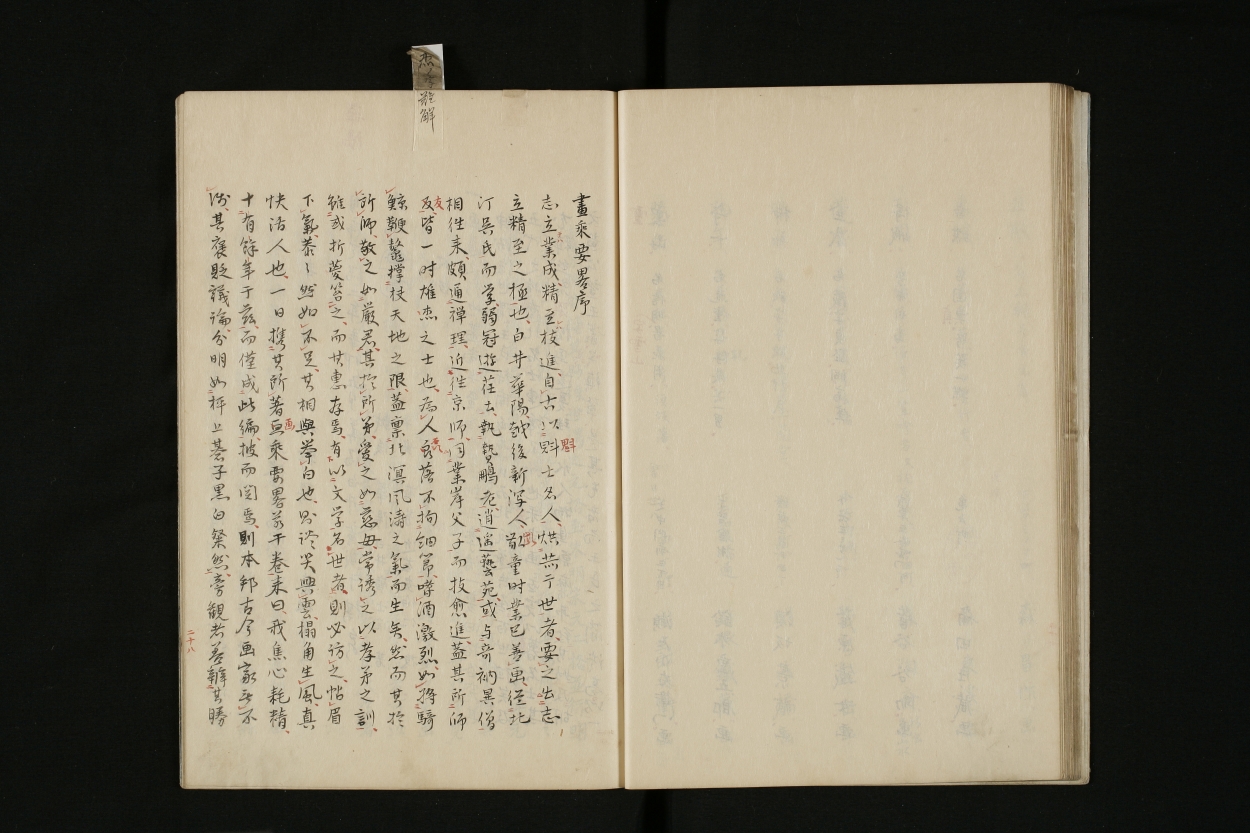 畫乘要畧序
志立業成精至技進自古以尉士名人烘赫于世者要之出志
立精至之極也白井華陽越後新潟人齠童時業已善画從北
汀吳氏而学弱冠遊在古執贄鵬老逍遥藝苑或与奇衲異僧
相往来頗通禅理近徃京師同業岸父子而技愈進蓋其所師
及皆一时雄杰之士也為人磊落不拘細節嗜酒激烈如将騎
鯨鞭鼇撑杖天地之限蓋禀北溟風濤之氣而生矣然而其於
所师敬之如嚴君其於所弟愛之如慈母常誘之以孝弟之訓
雖或折薆笞之而其惠存焉有以文学名世者則必访之帖眉
下氣恭〻然如不足其相與挙白也则谈笑興雲搨角生風真
快活人也一日携其所著画乘要畧若干卷来曰我焦心耗精
十有餘年于茲而僅成此編披而閲焉則本邦古今画家無不
渉其褒貶議論分明如枰上碁子黒白粲然旁観者善辨其勝
二十八
友
画
難解